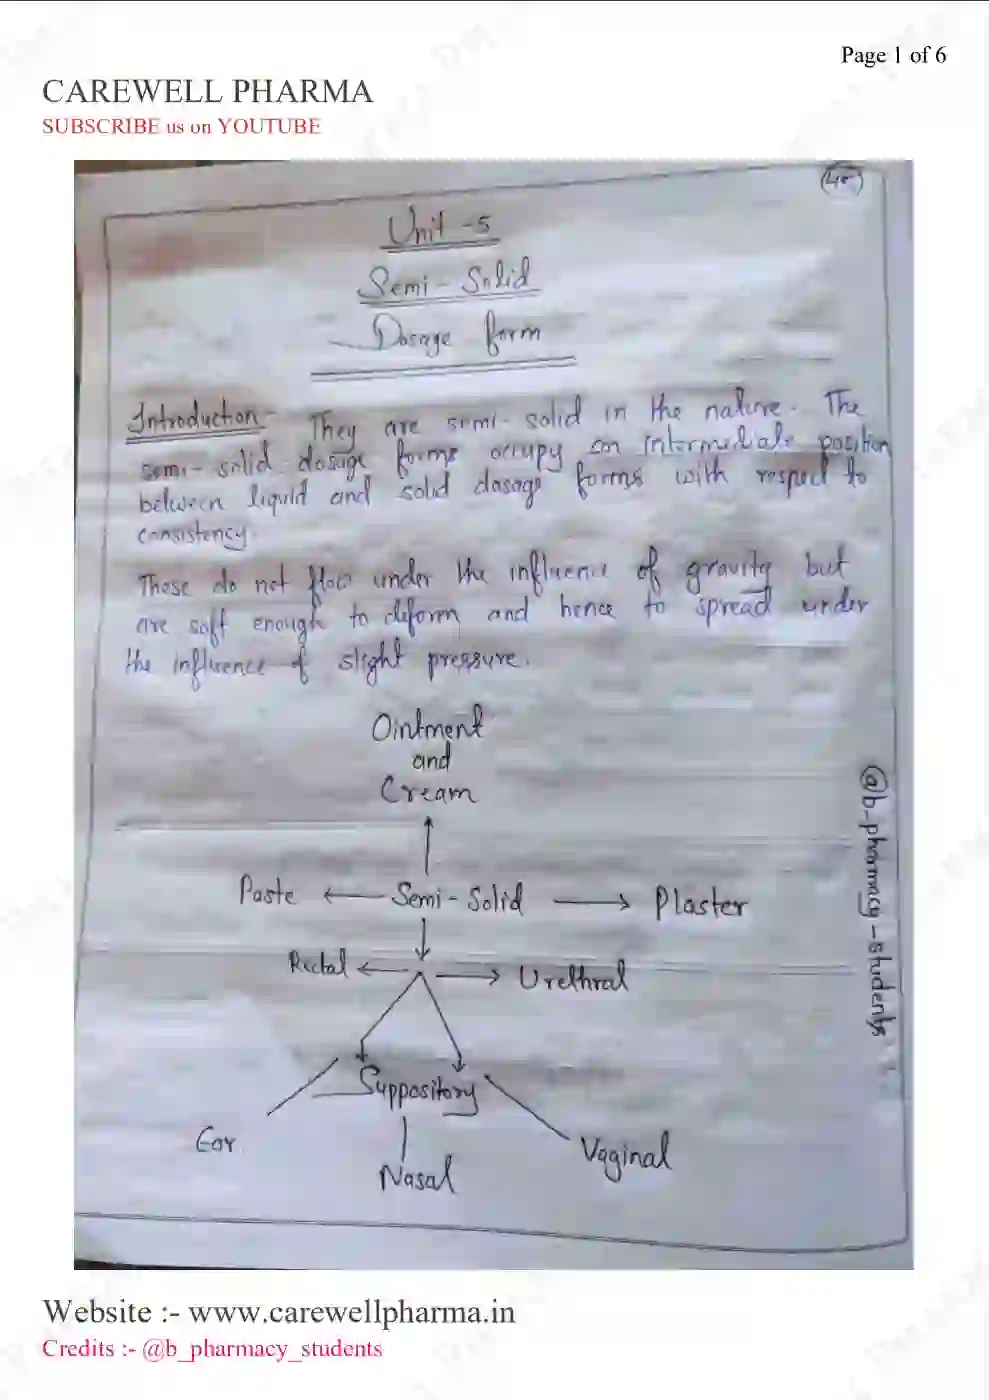 Page 1 of 6
CAREWELL PHARMA
SUBSCRIBE us on YOUTUBE
Unit - 5
Semi - Solid
Dosage form
Introduction - They are semi - solid in the nature. The
semi - solid dosage forms occupy an intermediate position
between liquid and solid dosage forms with respect to
consistency.
These do not flow under the influence of gravity but
are soft enough to deform and hence to spread under
the influence of slight pressure.
Ointment
and
Cream
Paste ← Semi - Solid → Plaster
Rectal ← → Urethral
Suppository
Ear
Nasal
Vaginal
@b_pharmacy_students
Website :- www.carewellpharma.in
Credits :- @b_pharmacy_students